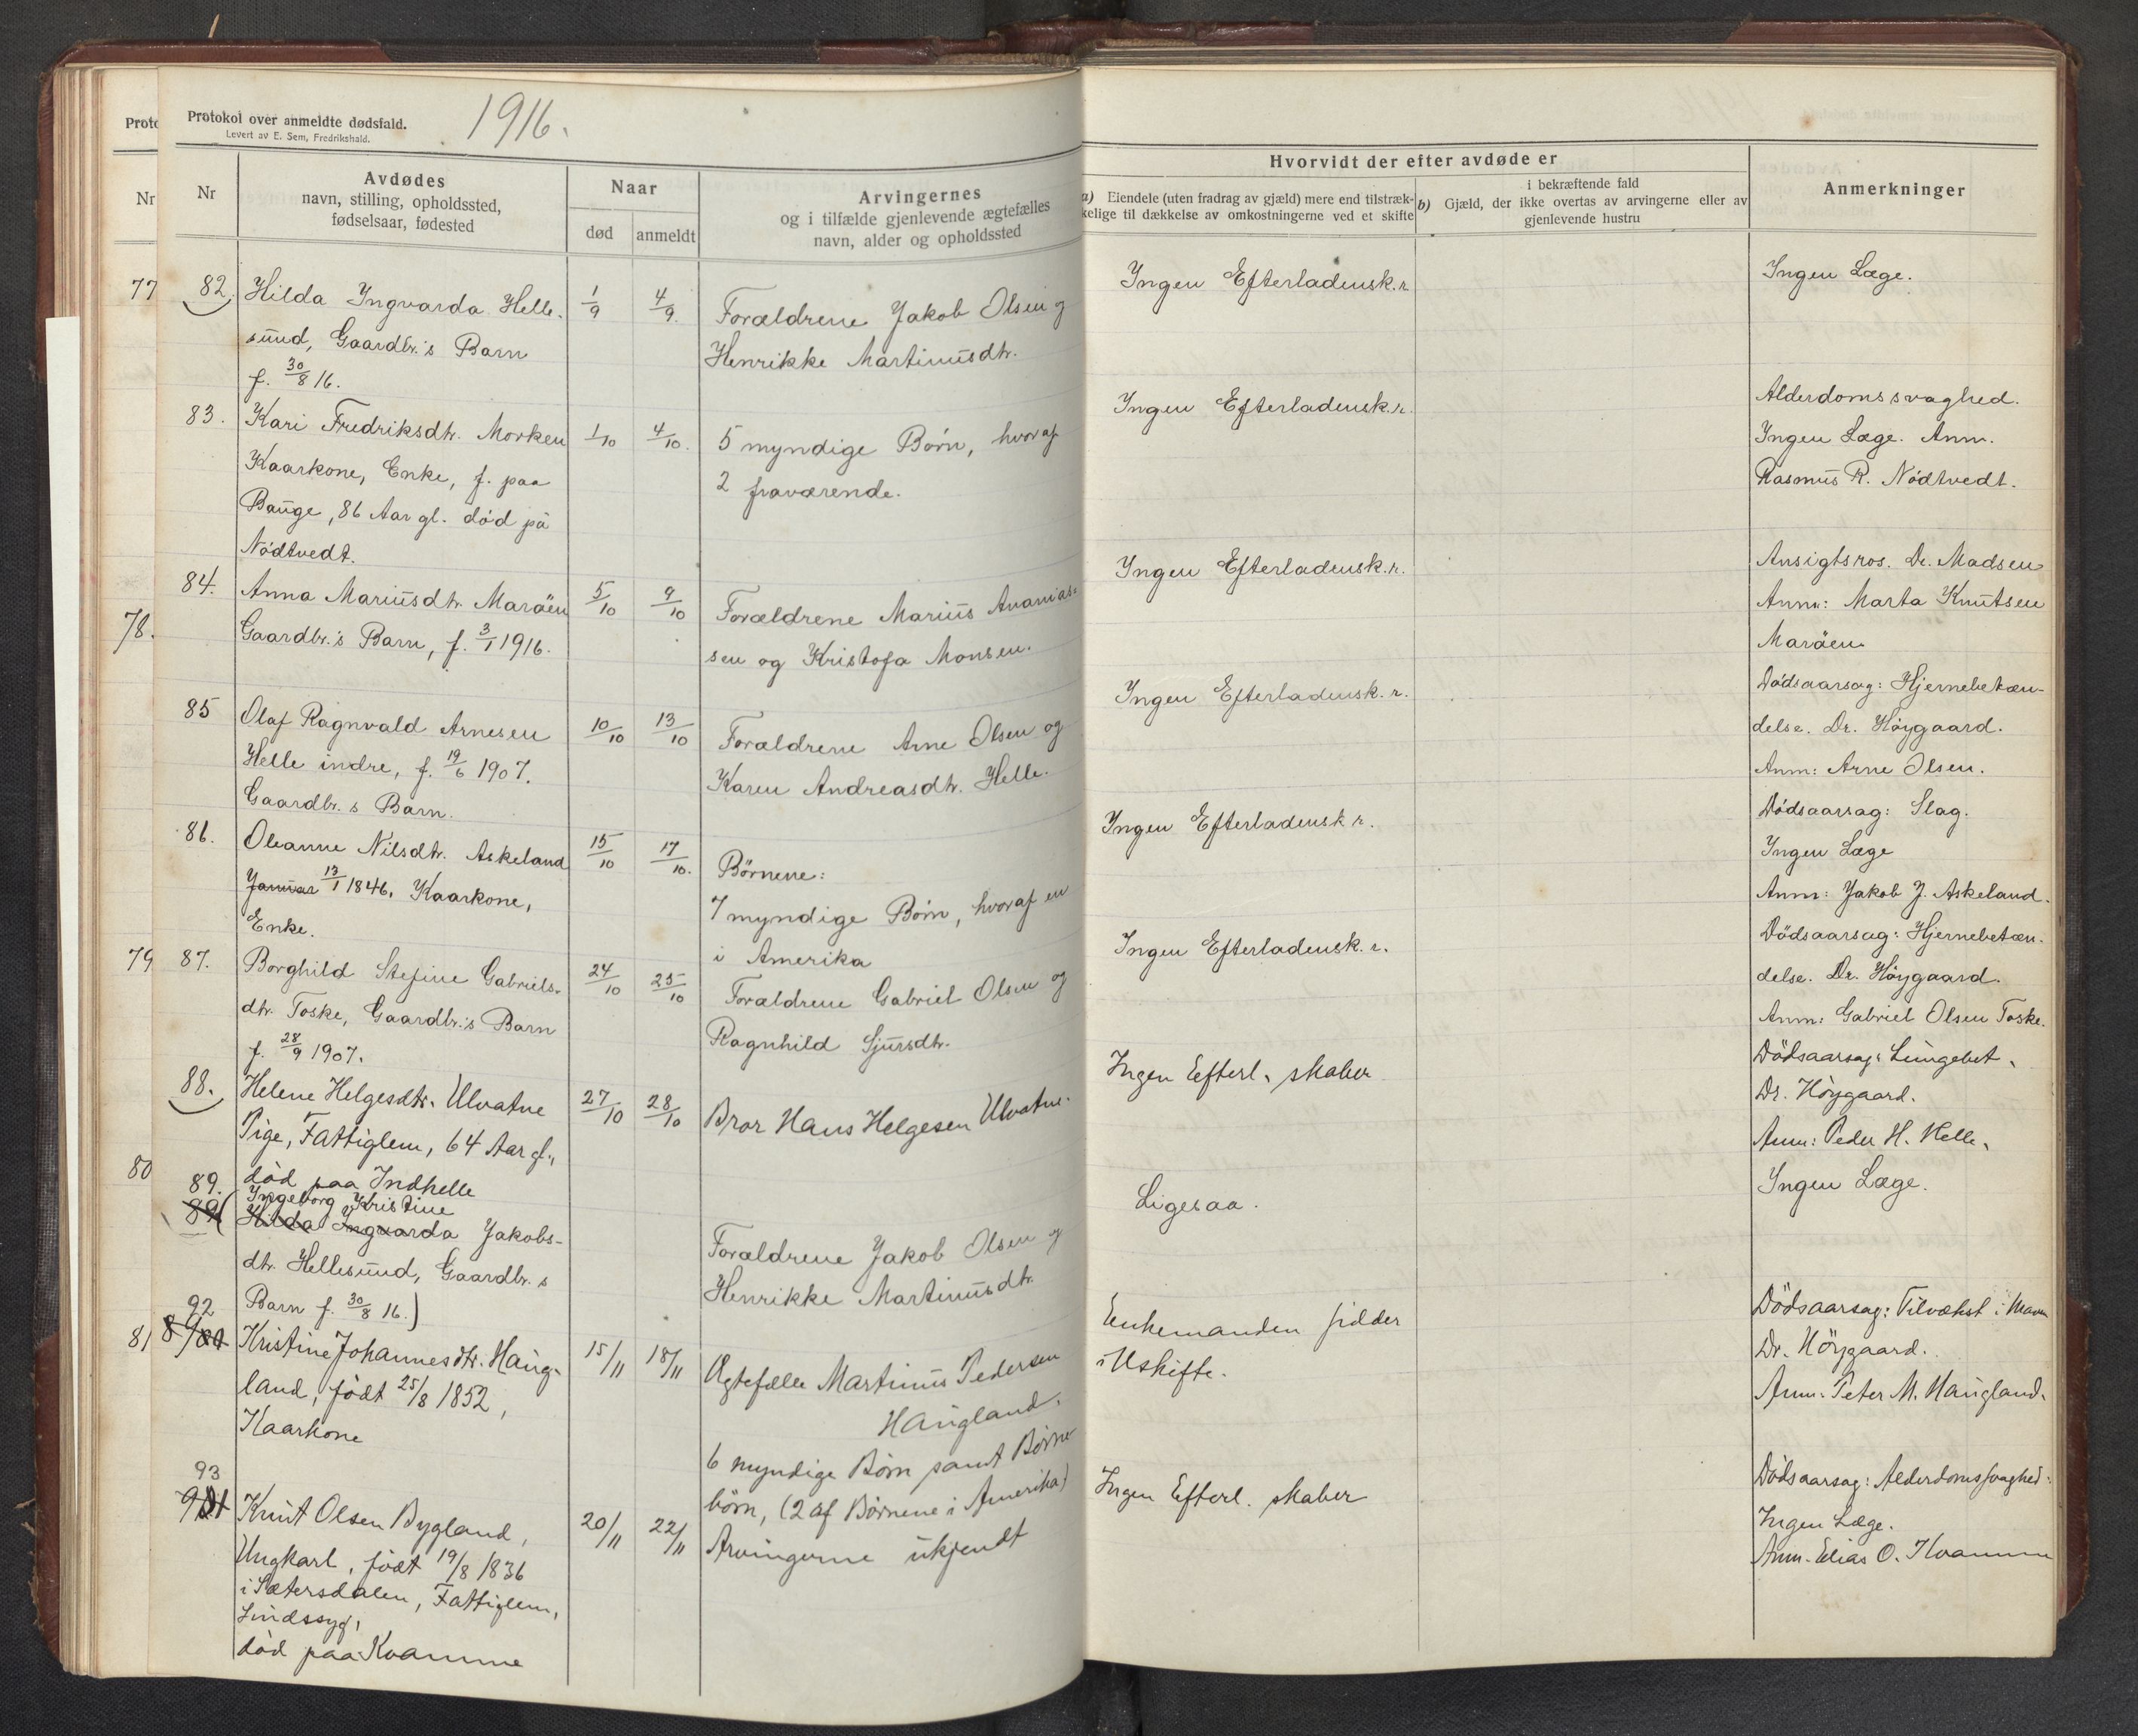 Proto
Nr
77
78.
79
80
81
Protokol over anmeldte dødsfald.
Levert av E. Sem, Fredrikshald.
1916.
Nr
Avdødes
navn, stilling, opholdssted,
fødselsaar, fødested
Naar
død
anmeldt
Arvingernes
og i tilfælde gjenlevende ægtefælles
navn, alder og opholdssted
Hvorvidt der efter avdøde er
a) Eiendele (uten fradrag av gjæld) mere end tilstræk-
kelige til dækkelse av omkostningerne ved et skifte
i bekræftende fald
b) Gjæld, der ikke overtas av arvingerne eller av
gjenlevende hustru
Anmerkninger
82.
Hilda Ingvarda Helle-
sund, Gaardbr.'s Barn
f. 30/8 16.
1/9
4/9.
Forældrene Jakob Olsen og
Henrikke Martinusdtr.
Ingen Efterladensk.r.
Ingen Læge.
83.
Kari Fredriksdtr. Morken
Kaarkone, Enke, f. paa
Bauge, 86 Aar gl. død på
Nödtvedt.
1/10
4/10.
5 myndige Börn, hvoraf
2 fraværende.
Ingen Efterladensk.r.
Alderdomssvaghed.
Ingen Læge. Anm.
Rasmus R. Nödtvedt.
84.
Anna Mariusdtr. Maröen
Gaardbr.'s Barn, f. 3/1 1916.
5/10
9/10
Forældrene Marius Ananias-
sen og Kristofa Monsen.
Ingen Efterladensk.r.
Ansigtsros. Dr. Madsen
Anm: Marta Knutsen
Maröen
85
Olaf Ragnvald Arnesen
Helle indre, f. 19/6 1907.
Gaardbr.s Barn.
10/10
13/10
Forældrene Arne Olsen og
Karen Andreasdtr. Helle.
Ingen Efterladensk.r.
Dödsaarsag: Hjernebetæn-
delse. Dr. Höygaard.
Anm: Arne Olsen.
86.
Oleanne Nilsdtr. Askeland
Januar 13/1 1846. Kaarkone,
Enke.
15/10
17/10.
Børnene:
7 myndige Börn, hvoraf en
i Amerika
Ingen Efterladensk r.
Dödsaarsag: Slag.
Ingen Læge
Anm: Jakob J. Askeland.
87.
Borghild Stefine Gabriels-
dtr. Toske, Gaardbr.'s Barn
f. 28/9 1907.
24/10
25/10
Forældrene Gabriel Olsen og
Ragnhild Sjursdtr.
Ingen Efterladensk.r.
Dödsaarsag: Hjernebetæn-
delse. Dr. Höygaard.
Anm: Gabriel Olsen Toske.
88.
Helene Helgesdtr. Ulvatne
Pige, Fattiglem, 64 Aar gl.,
død paa Indhelle
27/10
28/10
Bror Hans Helgesen Ulvatne.
Ingen Efterl. skaber
Dödsaarsag: Lungebet.
Dr. Höygaard.
Anm: Peder H. Helle.
89.
89(
Ingeborg Kristine
Hilda Ingvarda Jakobs-
dtr. Hellesund, Gaardbr.s
Barn f. 30/8 16.)
Forældrene Jakob Olsen og
Henrikke Martinusdtr.
Ligesaa.
Ingen Læge.
92
Kristine Johannesdtr. Haug-
land, födt 25/8 1852,
Kaarkone
15/11
18/11
Ægtefælle Martinus Pedersen
Haugland.
6 myndige Börn samt Börne-
börn, (2 af Börnene i Amerika)
Enkemanden sidder
i Uskifte.
Dödsaarsag: Tilvækst i Maven
Dr. Höygaard.
Anm. Peter M. Haugland.
93
Knut Olsen Bygland,
Ungkarl, født 19/8 1836
i Sætersdalen, Fattiglem,
Sindssyg,
död paa Kvamme
20/11
22/11
Arvingerne ukjendt
Ingen Efterl. skaber
Dödsaarsag: Alderdomssvaghed.
Ingen Læge.
Anm. Elias O. Kvamme